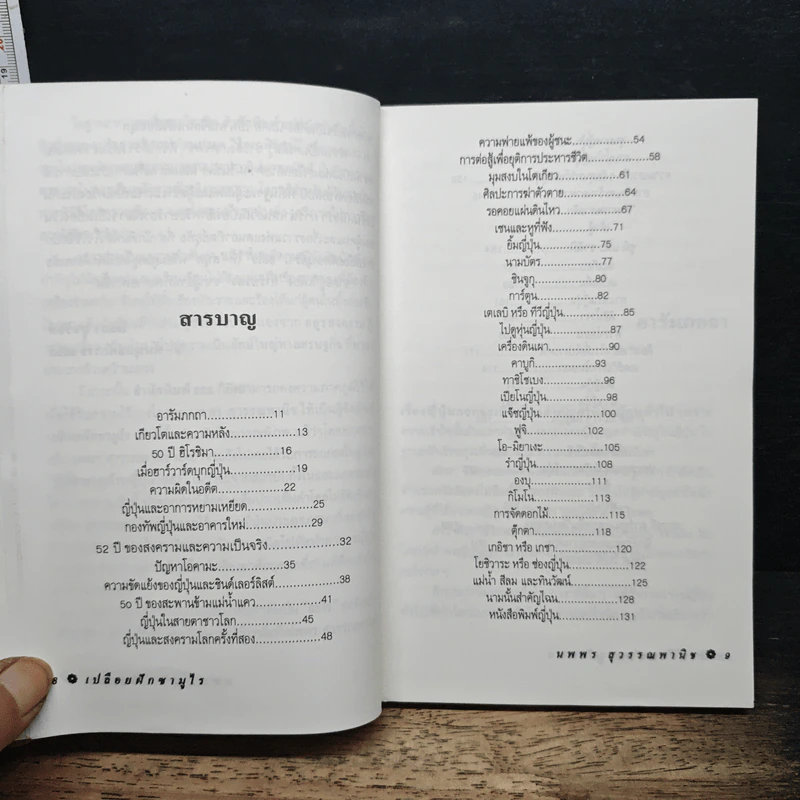 สารบาญ
อารัมภกถา...................11
เกียวโตและความหลัง...............13
50 ปี ฮิโรชิมา...............16
เมื่อฮาร์วาร์ดบุกญี่ปุ่น...............19
ความผิดในอดีต...............22
ญี่ปุ่นและอาการหยามเหยียด...............25
กองทัพญี่ปุ่นและอาคารใหม่...............29
52 ปี ของสงครามและความเป็นจริง...............32
ปัญหาโอคามะ...............35
ความขัดแย้งของญี่ปุ่นและชินด์เลอร์ลิสต์...............38
50 ปี ของสะพานข้ามแม่น้ำแคว...............41
ญี่ปุ่นในสายตาชาวโลก...............45
ญี่ปุ่นและสงครามโลกครั้งที่สอง...............48
8 เปลือยฝักซามูไร
ความพ่ายแพ้ของผู้ชนะ...............54
การต่อสู้เพื่อยุติการประหารชีวิต...............58
มุมสงบในโตเกียว...............61
ศิลปะการฆ่าตัวตาย...............64
รอคอยแผ่นดินไหว...............67
เซนและหูที่ฟัง...............71
ยิ้มญี่ปุ่น...............75
นามบัตร...............77
ชินจูกุ...............80
การ์ตูน...............82
เตเลบิ หรือ ทีวีญี่ปุ่น...............85
ไปดูหุ่นญี่ปุ่น...............87
เครื่องดินเผา...............90
คาบูกิ...............93
ทาชิโชเบง...............96
เปียโนญี่ปุ่น...............98
แจ๊ซญี่ปุ่น...............100
ฟูจิ...............102
โอ-มิยาเงะ...............105
รำญี่ปุ่น...............108
องบุ...............111
กิโมโน...............113
การจัดดอกไม้...............115
ตุ๊กตา...............118
เกอิชา หรือ เกชา...............120
โยชิวาระ หรือ ซ่องญี่ปุ่น...............122
แม่น้ำ สีลม และทินวัฒน์...............125
นามนั้นสำคัญไฉน...............128
หนังสือพิมพ์ญี่ปุ่น...............131
นพพร สุวรรณพานิช 9
19